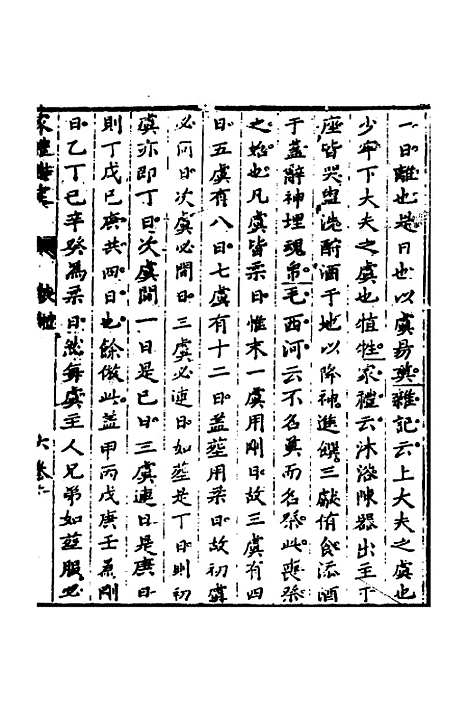 一日離也是日也以虞易奠雜記云上大夫之虞也
少牢下大夫之虞也犆牲家禮云沐浴陳器出主于
座皆哭盥洗酹酒于地以降神進饌三獻侑食添酒
于蓋辭神埋魂帛毛西河云不名奠而名祭此喪祭
之始也凡虞皆柔日惟末一虞用剛日故三虞有四
日五虞有八日七虞有十二日蓋葬用柔日故初虞
必同日次虞必間日三虞必連日如葬是丁日則初
虞亦即丁日次虞間一日是已日三虞連日是庚日
則丁戊已庚共四日也餘倣此蓋甲丙戊庚壬為剛
日乙丁已辛癸為柔日然每虞主人兄弟如葬服必